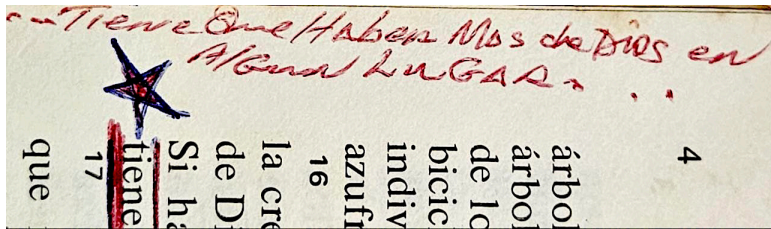 ...Tiene Que Haber Mas de Dios en
Algun LUGAR. . .
4
árbol
árbol
de lo
bicic
indiv
azufr
16
la cre
de Di
Si ha
tiene
17
que